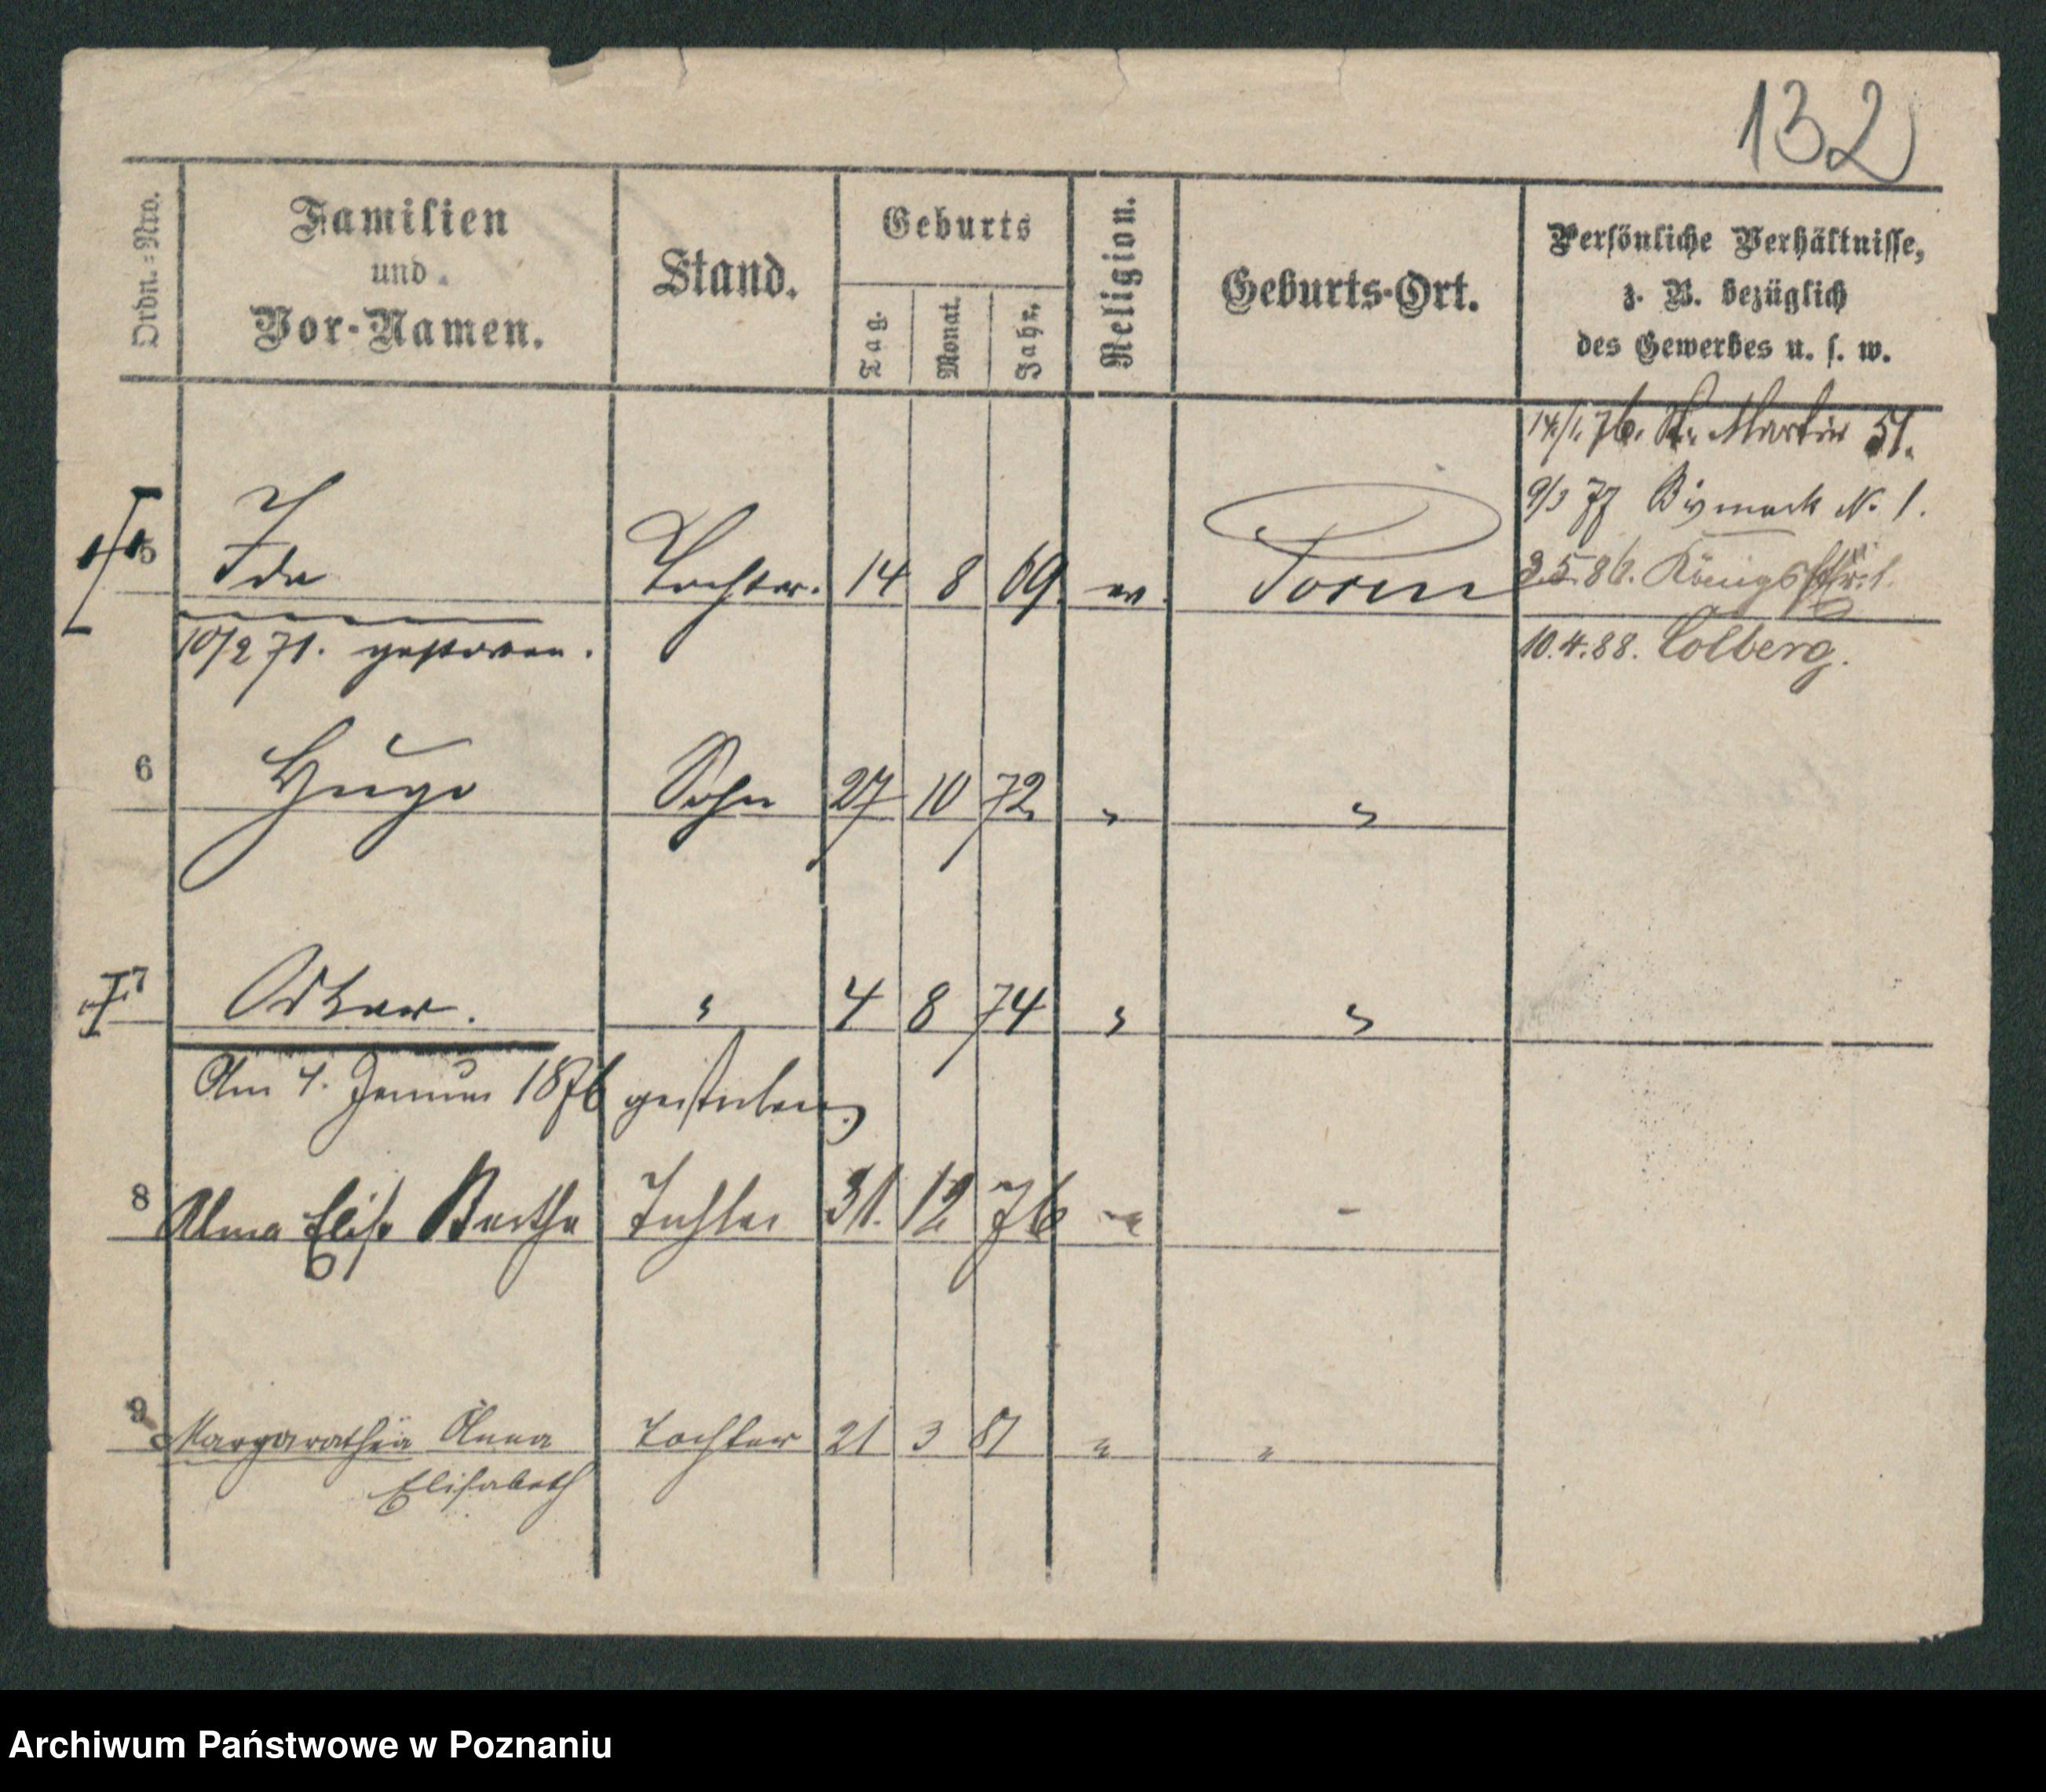 132
Ordn.-Nro.
Familien
und
Vor-Namen.
Stand.
Geburts
Tag.
Monat.
Jahr.
Religion.
Geburts-Ort.
Persönliche Verhältnisse,
z. B. bezüglich
des Gewerbes u. s. w.
14/1. 76. St. Martin 51.
9/3 77 Bismarck N. 1.
5 Ida Tochter. 14 8 69 ev. Posen 3.5.86. Königsstr. 1.
10/2 71. gestorben. 10.4.88. Colberg.
6 Hugo Sohn 27 10 72 " "
7 Oskar. " 4 8 74 " "
Am 4. Januar 1876 gestorben.
8 Alma Elise Bertha Tochter 31. 12 76 " -
9 Margarethe Anna Tochter 21 3 81 " "
Elisabeth
Archiwum Państwowe w Poznaniu